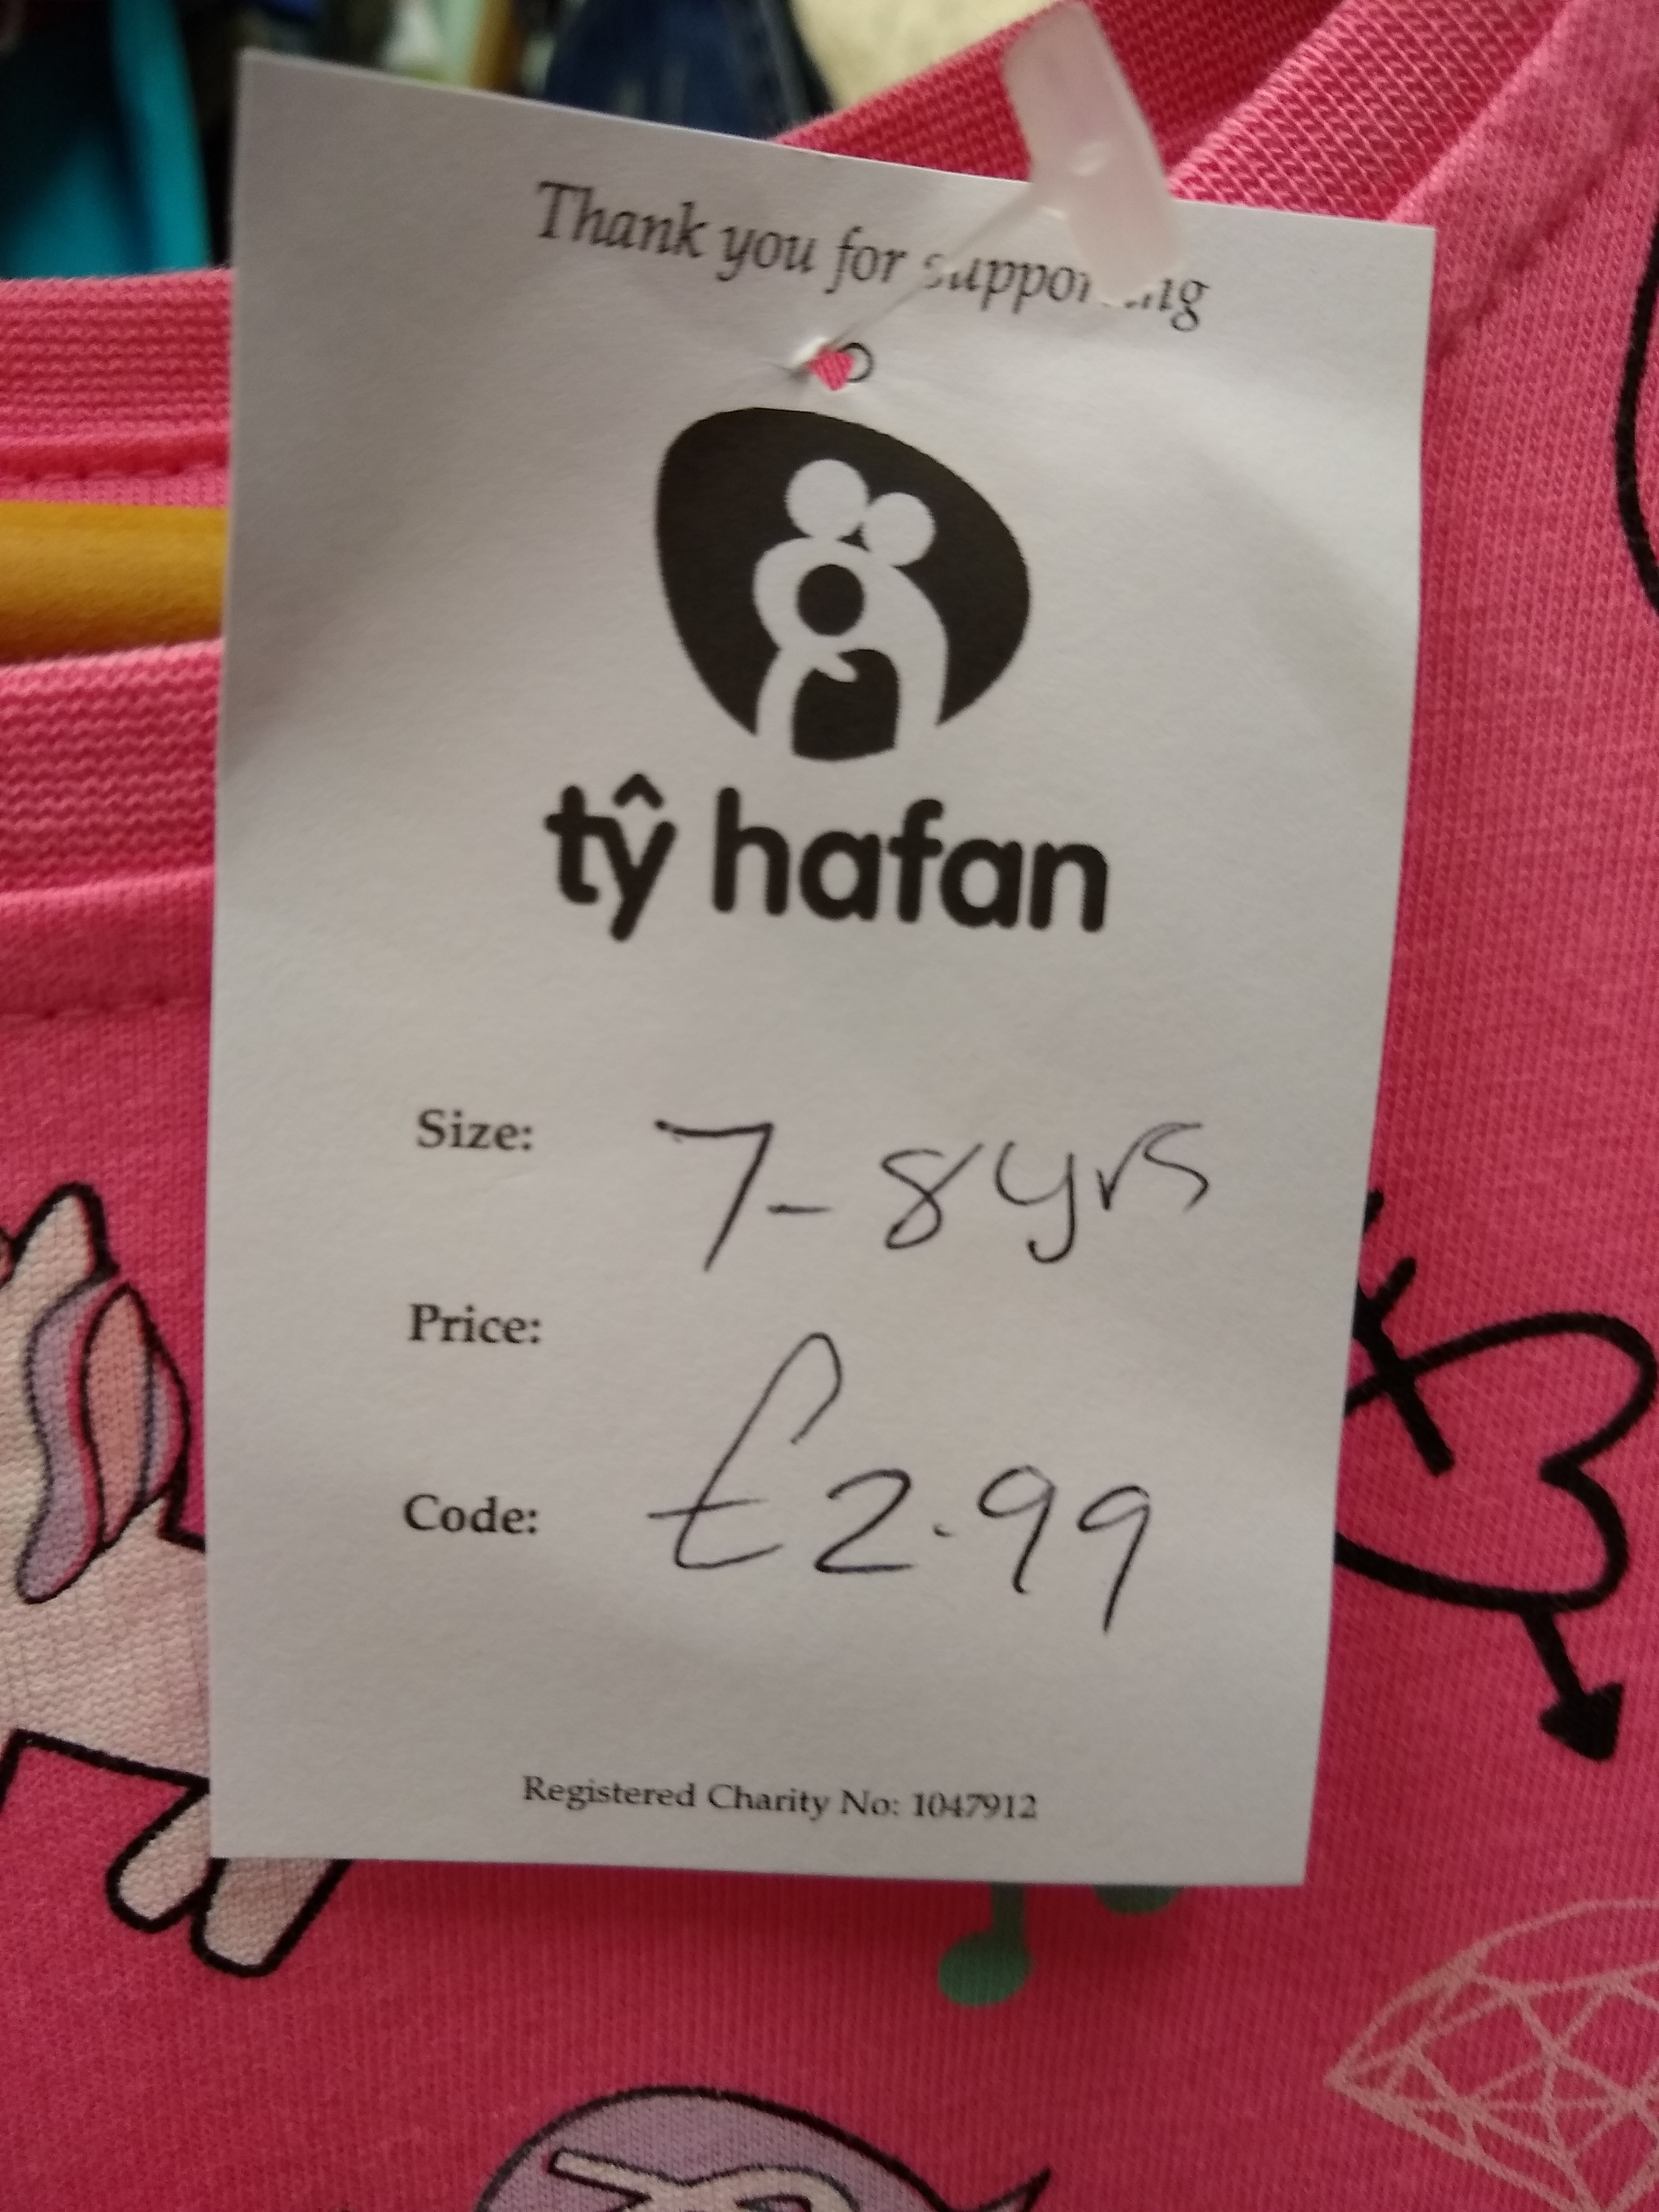 Thank you for supporting
tŷ hafan
Size: 7-8yrs
Price:
Code: £2.99
Registered Charity No: 1047912